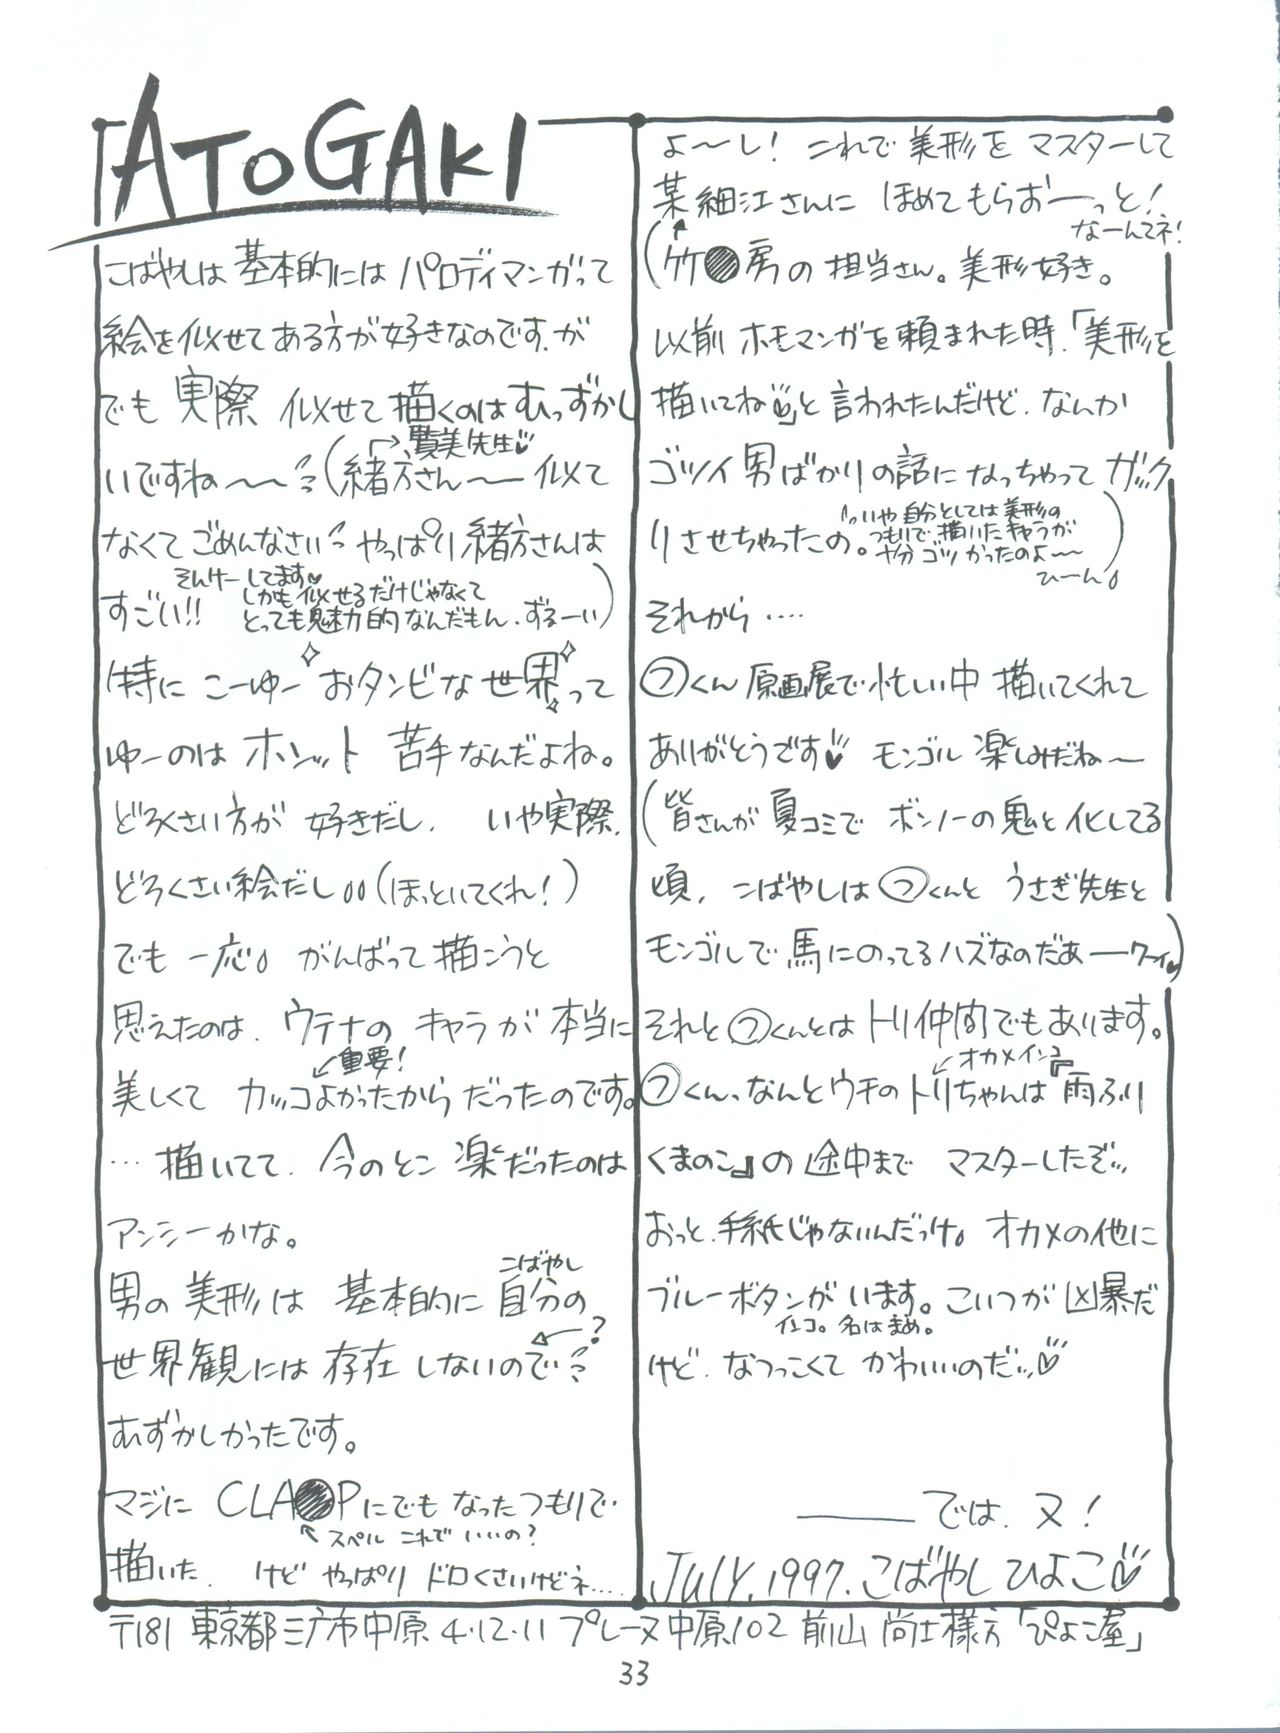 ATOGAKI
こばやしは基本的にはパロディマンガって
絵を似せてある方が好きなのです.が
でも実際 似せて描くのはむっずかし
いですね〜〜(緒方さん〜似て
→賢美先生♡
なくてごめんなさい やっぱり緒方さんは
すごい!!
そんけーしてます♡
しかも似せるだけじゃなくて
とっても魅力的なんだもん.ずるーい)
特に こーゆー おタンビな世界って
ゆーのは ホンット 苦手なんだよね。
どろくさい方が 好きだし. いや実際.
どろくさい絵だし(ほっといてくれ!)
でも 一応 がんばって描こうと
思えたのは. ウテナの キャラが 本当に
美しくて カッコよかったからだったのです。
重要!
…描いてて. 今のとこ 楽だったのは
アンシーかな。
男の美形は 基本的に自分の
こばやし
世界観には存在しないので
←?
むずかしかったです。
マジに CLA●Pにでもなったつもりで.
スペル これで いいの?
描いた. けど やっぱり ドロくさいけどネ....
よ〜し! これで美形をマスターして
某細江さんに ほめてもらおーっと!
なーんてネ!
(竹●房の担当さん。美形好き。
以前ホモマンガを頼まれた時.「美形を
描いてね♡」と言われたんだけど.なんか
ゴツイ男ばかりの話になっちゃって ガック
リさせちゃったの。
いや自分としては美形の
つもりで描いたキャラが
やゝゴツかったのよ〜
ひーん)
それから ....
㋫くん 原画展で忙しい中 描いてくれて
ありがとうです♡ モンゴル楽しみだね〜
(皆さんが夏コミで ボンノーの鬼と化してる
頃, こばやしは㋫くんと うさぎ先生と
モンゴルで馬にのってるハズなのだあーワーイ♡)
それと㋫くんとはトリ仲間でもあります。
㋫くん、なんとウチのトリちゃんは『雨ふり
オカメインコ
くまのこ』の途中まで マスターしたぞ
おっと.手紙じゃないんだっけ。オカメの他に
ブルーボタンがいます。こいつが凶暴だ
インコ。名はまめ。
けど.なつっこくて かわいいのだ♡
―――では. 又!
JULY.1997.こばやしひよこ♡
〒181 東京都三鷹市中原4-12-11プレーヌ中原102 前山尚士様方「ぴよこ屋」
33